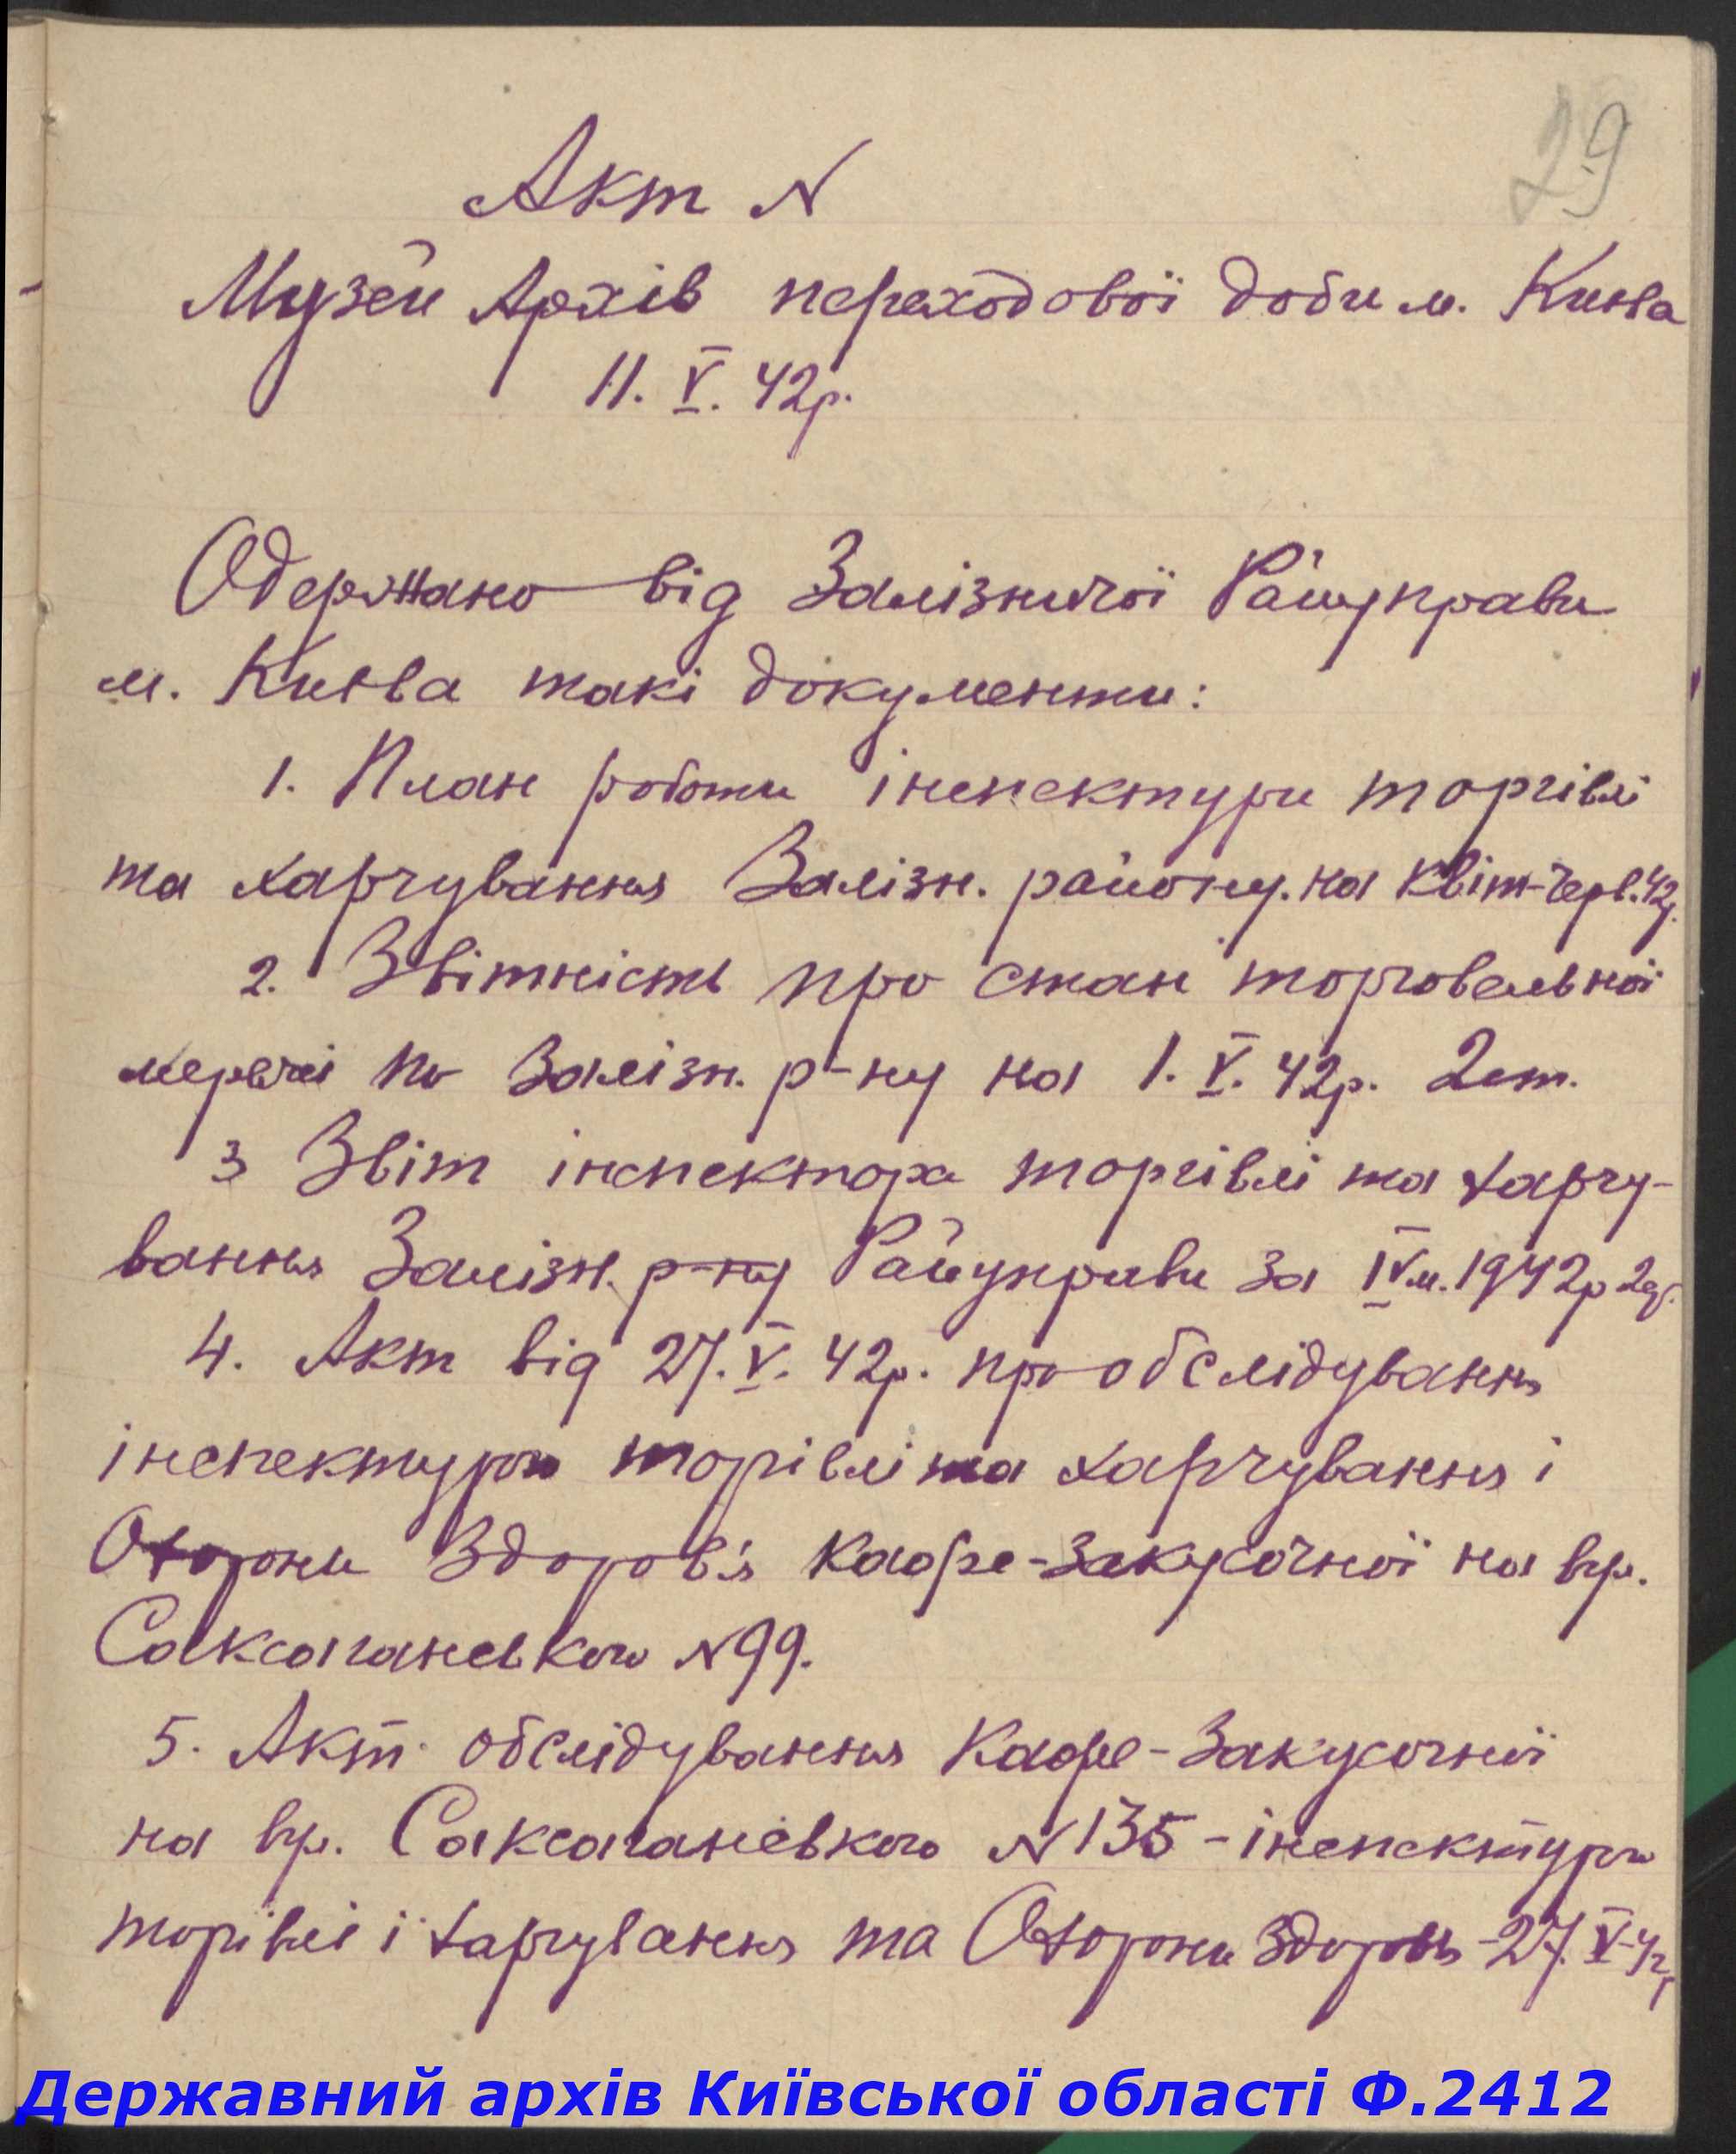 29
Акт N
Музей Архів переходової доби м. Києва
11. V. 42р.
Одержано від Залізничої Райуправи
м. Києва такі документи:
1. План роботи інспектури торгівлі
та харчування Залізн. району. на квіт-черв. 42р.
2. Звітність про стан торговельної
мережі по Залізн. р-ну на 1. V. 42р. 2 шт.
3 Звіт інспектора торгівлі та харчу-
вання Залізн. р-ну Райуправи за IV м. 1942р
4. Акт від 27. V. 42р. про обслідування
інспектурою торгівлі та харчування і
Охорони Здоров'я кафе-закусочної на вул.
Саксаганського N 99.
5. Акт обслідування Кафе-Закусочної
на вул. Саксаганського N 135 - інспектурою
торгівлі і харчування та Охорони здоровя - 27. V-42р
Державний архів Київської області Ф.2412